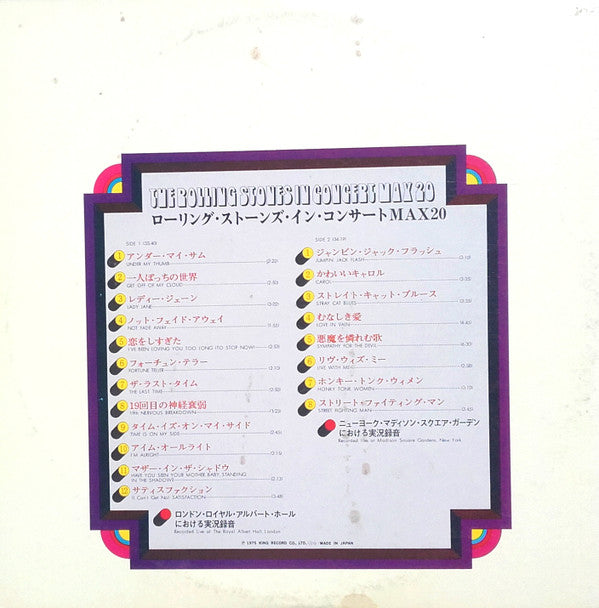 THE ROLLING STONES IN CONCERT MAX 20
ローリング・ストーンズ・イン・コンサートMAX20
SIDE 1
1 アンダー・マイ・サム
UNDER MY THUMB
2 一人ぼっちの世界
GET OFF OF MY CLOUD
3 レディー・ジェーン
LADY JANE
4 ノット・フェイド・アウェイ
NOT FADE AWAY
5 恋をしすぎた
I'VE BEEN LOVING YOU TOO LONG (TO STOP NOW)
6 フォーチュン・テラー
FORTUNE TELLER
7 ザ・ラスト・タイム
THE LAST TIME
8 19回目の神経衰弱
19th NERVOUS BREAKDOWN
9 タイム・イズ・オン・マイ・サイド
TIME IS ON MY SIDE
10 アイム・オールライト
I'M ALRIGHT
11 マザー・イン・ザ・シャドウ
HAVE YOU SEEN YOUR MOTHER, BABY, STANDING
IN THE SHADOW
12 サティスファクション
(I Can't Get No) SATISFACTION
ロンドン・ロイヤル・アルバート・ホール
における実況録音
Recorded Live at The Royal Albert Hall, London
SIDE 2
1 ジャンピン・ジャック・フラッシュ
JUMPIN' JACK FLASH
2 かわいいキャロル
CAROL
3 ストレイト・キャット・ブルース
STRAY CAT BLUES
4 むなしき愛
LOVE IN VAIN
5 悪魔を憐れむ歌
SYMPATHY FOR THE DEVIL
6 リヴ・ウィズ・ミー
LIVE WITH ME
7 ホンキー・トンク・ウィメン
HONKY TONK WOMEN
8 ストリート・ファイティング・マン
STREET FIGHTING MAN
ニューヨーク・マディソン・スクエア・ガーデン
における実況録音
Recorded live at Madison Square Gardens, New York
Ⓟ 1975 KING RECORD CO., LTD. MADE IN JAPAN